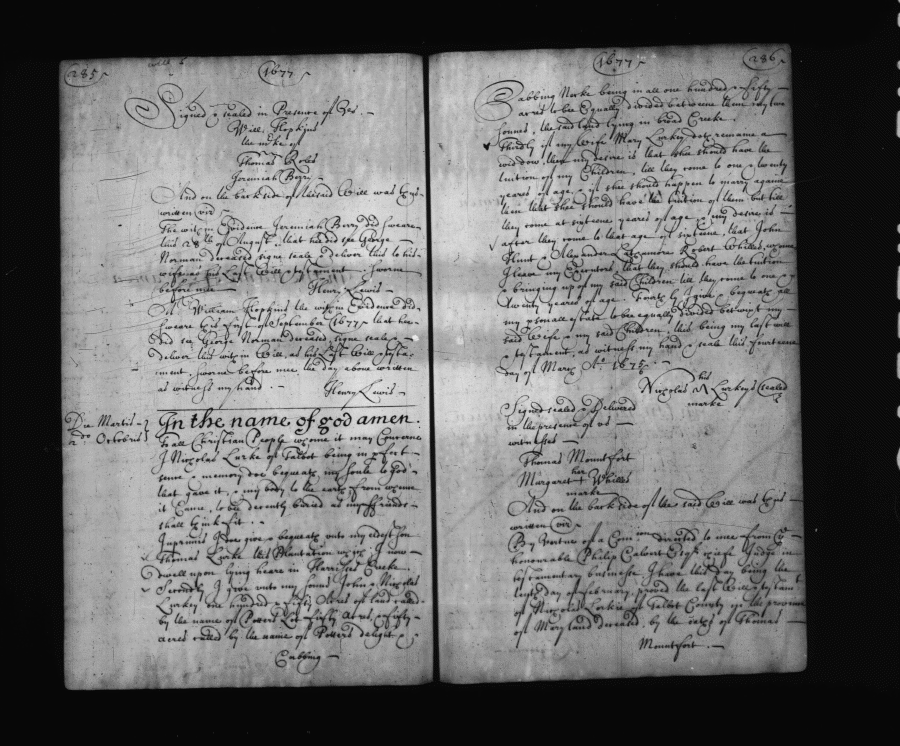 285
1677
Signed & sealed in Presence of Us
Will: Hopkins
the mke of
Thomas Roles
Jeremiah Berry
And on the backside of the said Will was thus
written viz
The witin Evidence Jeremiah Berry did sweare
this 28th of August, that he did see George
Norman deceased signe seale & deliver this to his
wife as his Last Will & testament. sworne
before mee Henry Lewis
William Hopkins the witin Evidence did
sweare this first of September 1677 that hee
did see George Norman deceased signe seale &
deliver this witin Will, as his Last Will & testa-
ment, sworne before mee the day above written
as witness my hand Henry Lewis
Die Martis
2do Octobris
In the name of god amen.
To all Christian People whome it may Concerne
I Nicholas Lurke of Talbot being in pfect
sence & memory doe bequeath my soule to god
that gave it, & my body to the earth from whence
it Came, to be decently buried as my ffriends
shall think fit.
Inprimis I doe give & bequeath unto my eldest son
Thomas Lurke this Plantation wch I now
dwell upon lying heare in Harrisses Creeke.
Secondly I give unto my sonns John & Nicholas
Lurkey one hundred & fifty Acres of land called
by the name of Potters fifty acres & fifty
acres called by the name of Potters delight &
Cabbing
1677
286
Cabbing Necke being in all one hundred & fifty
acres to bee Equally divided betweene them my two
sonnes, the said land lying in broad Creeke.
Thirdly if my Wife Mary Lurkey doth remaine a
widdow, then my desire is that shee should have the
tuition of my Children, till they come to one & twenty
yeares of age, & if shee should happen to marry againe
then that shee should have the tuition of them but till
they come at sixteene yeares of age, & my desire is
after they come to that age of sixteene, that John
Flint & Alexander Robert Whilles, whome
I leave my Executors, that they should have the tuition
& bringing up of my said Children till they come to one &
twenty yeares of age. I give & bequeath all
my psonall estate to be equally divided betwixt my
said Wife & my said Children, this being my last will
& testament, as witness my hand & seale this fourteene
day of March Ao. 1675
his
Nicholas Lurkey (sealed
marke
Signed sealed & Delivered
in the presence of us
witnesses
Thomas Mountfort
her
Margaret + Whilles
marke
And on the backside of the said Will was thus
written viz
By Vertue of a Comission directed to mee from the
honourable Philip Calvert Esqr. chiefe Judge in
testamentary business I have this day being the
day of february, proved the last Will & testamt
of Nicholas of Talbot County in the province
of Maryland deceased, by the oathes of Thomas
Mountfort.